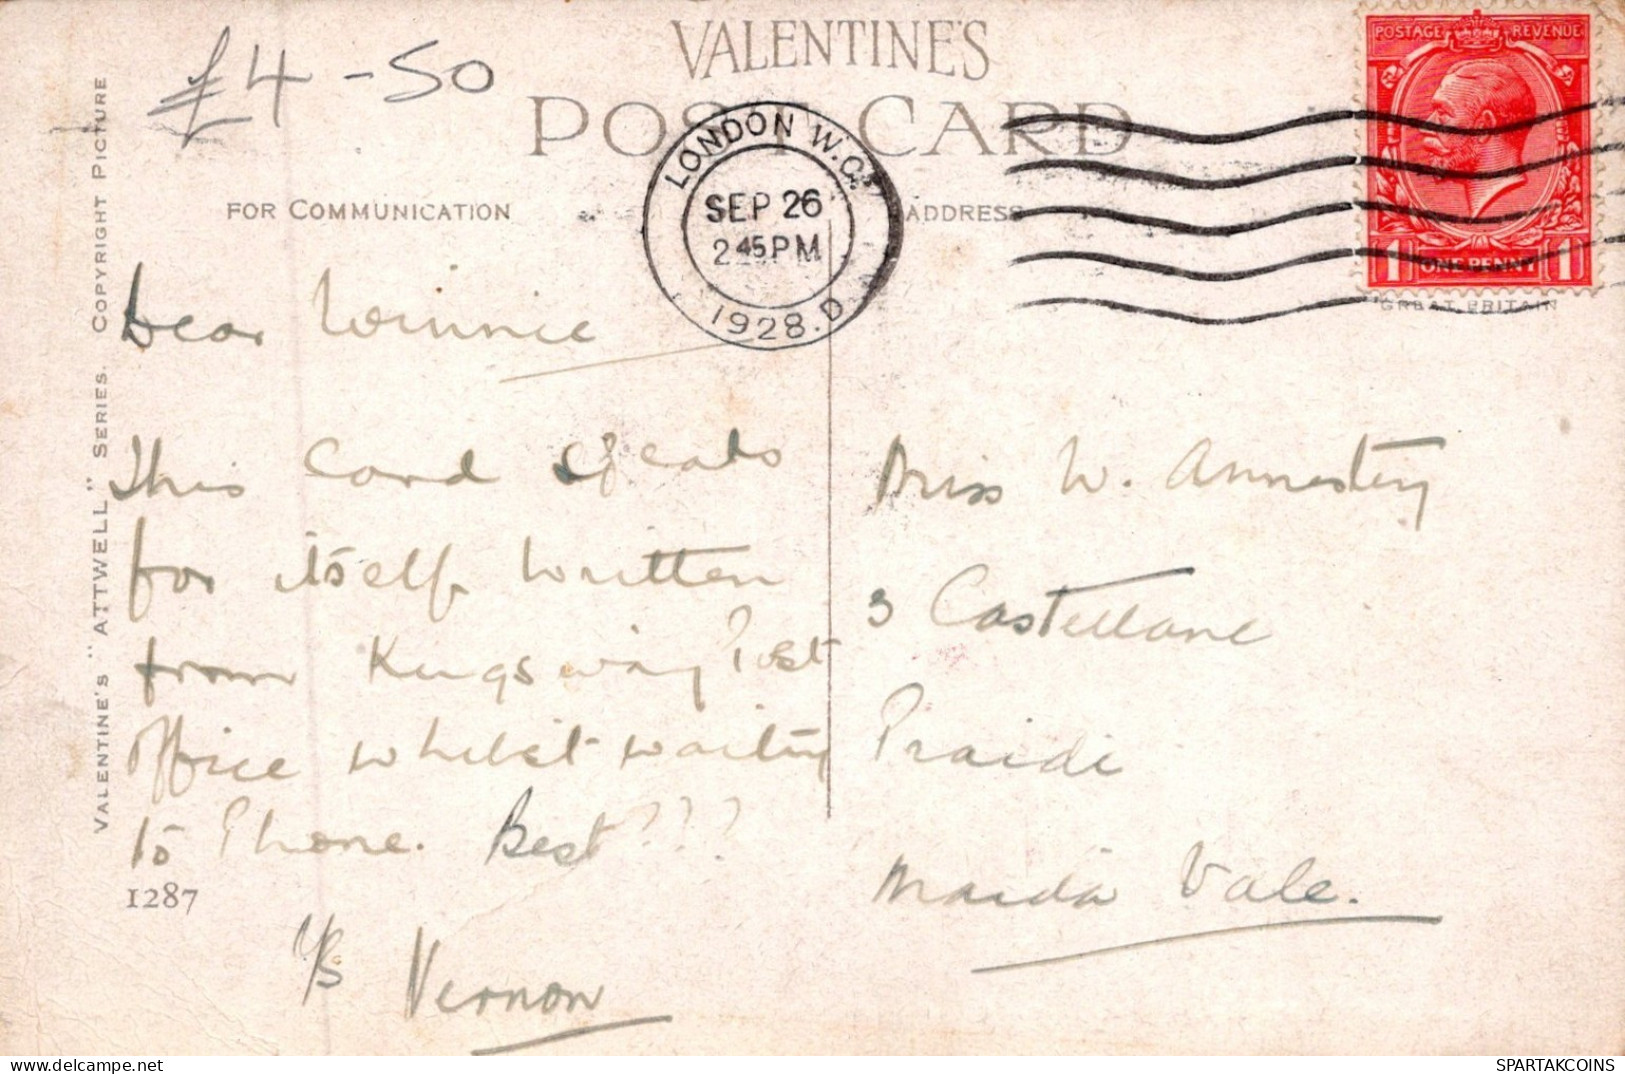 £4-50
VALENTINE'S
POST CARD
FOR COMMUNICATION
ADDRESS
LONDON W.C.
SEP 26
2 45 PM
1928. D
POSTAGE REVENUE
1 ONE PENNY 1
GREAT BRITAIN
VALENTINE'S "ATTWELL" SERIES. COPYRIGHT PICTURE
Dear Winnie
This Card speaks
for itself written
from Kingsway Post
Office whilst waiting
to Phone. Best???
1287
Y/S Vernon
Miss W.
3 Castellane
Maida Vale.
www.delcampe.net
SPARTAKCOINS